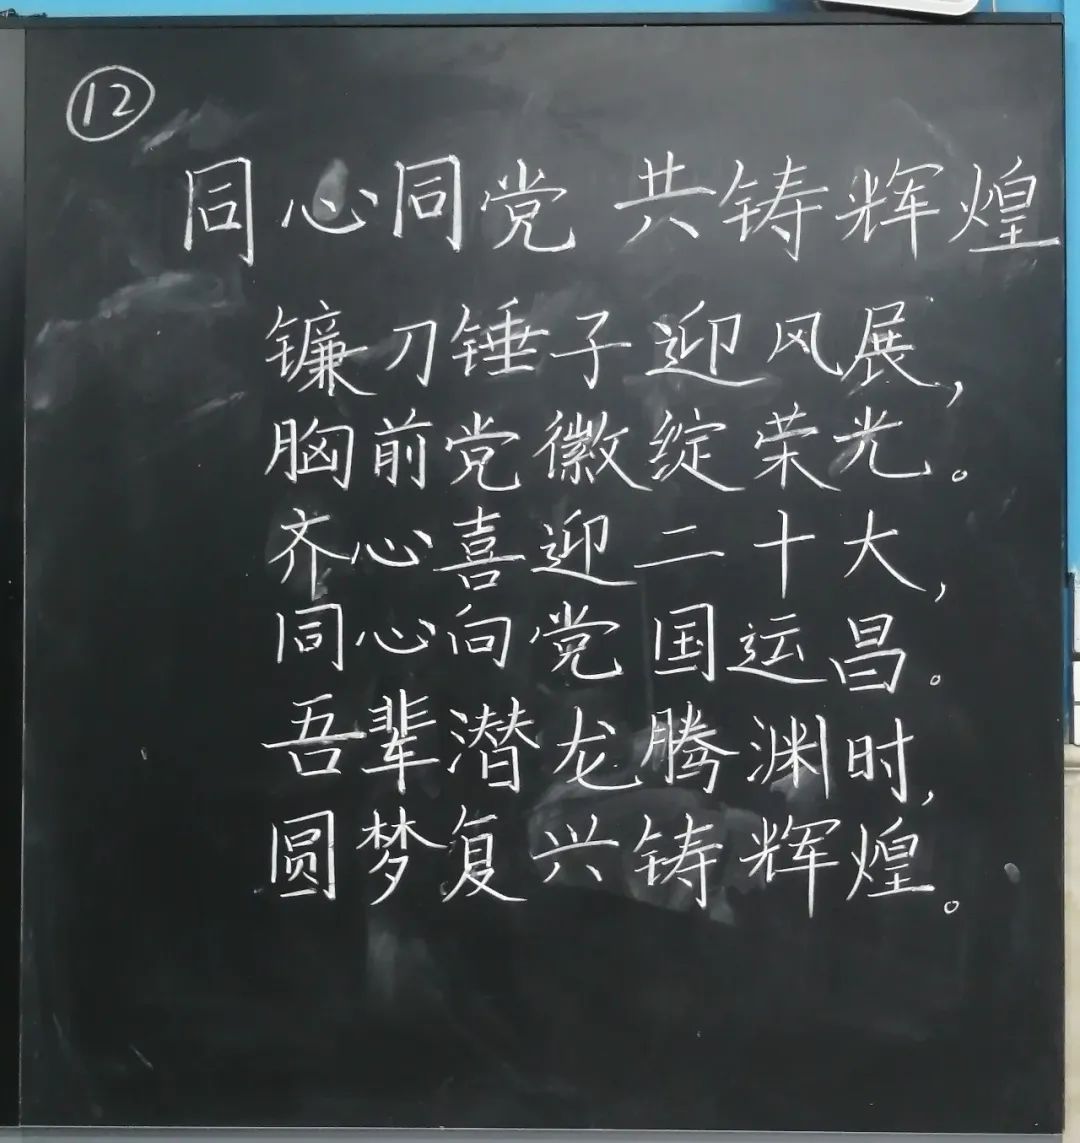 ⑫
同心同党 共铸辉煌
镰刀锤子迎风展,
胸前党徽绽荣光。
齐心喜迎二十大,
同心向党国运昌。
吾辈潜龙腾渊时,
圆梦复兴铸辉煌。